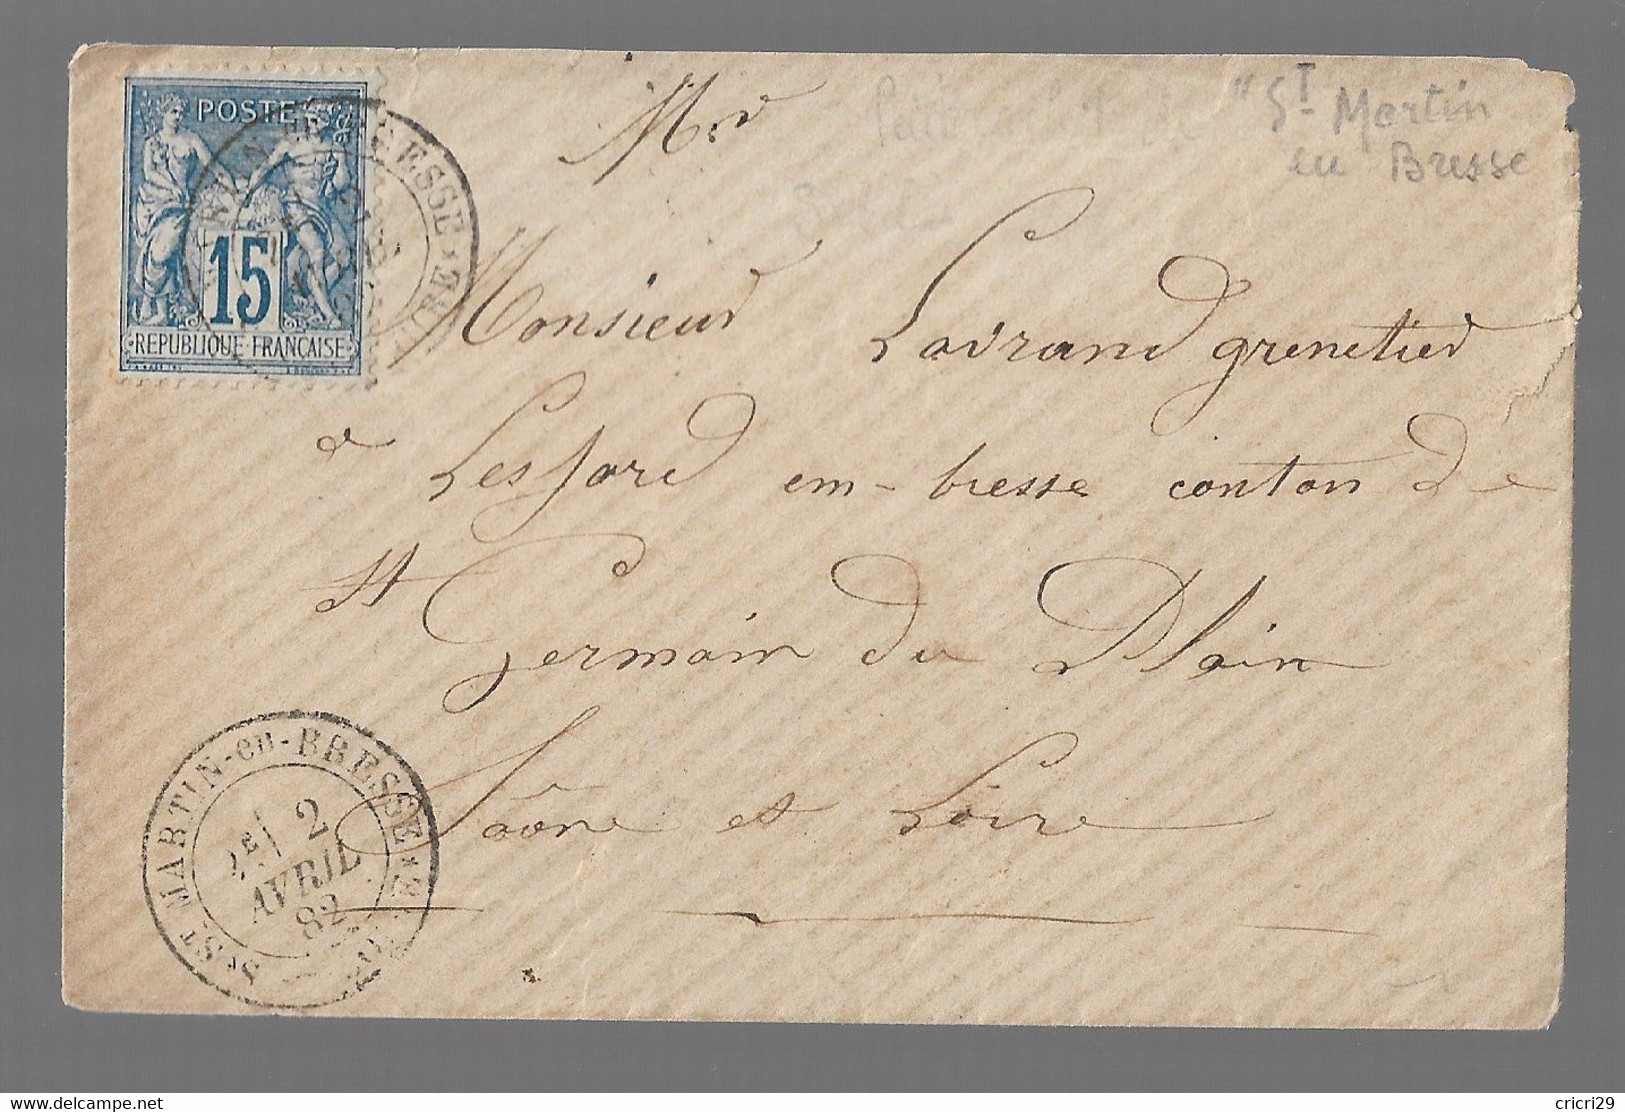 POSTE
15
REPUBLIQUE FRANÇAISE
BRESSE
St Martin
en Bresse
Mr
Monsieur Lavrand grenetier
a Lessard em-bresse canton de
St Germain du Plain
Saône et Loire
St MARTIN-en-BRESSE
2
AVRIL
82
www.delcampe.net
cricri29